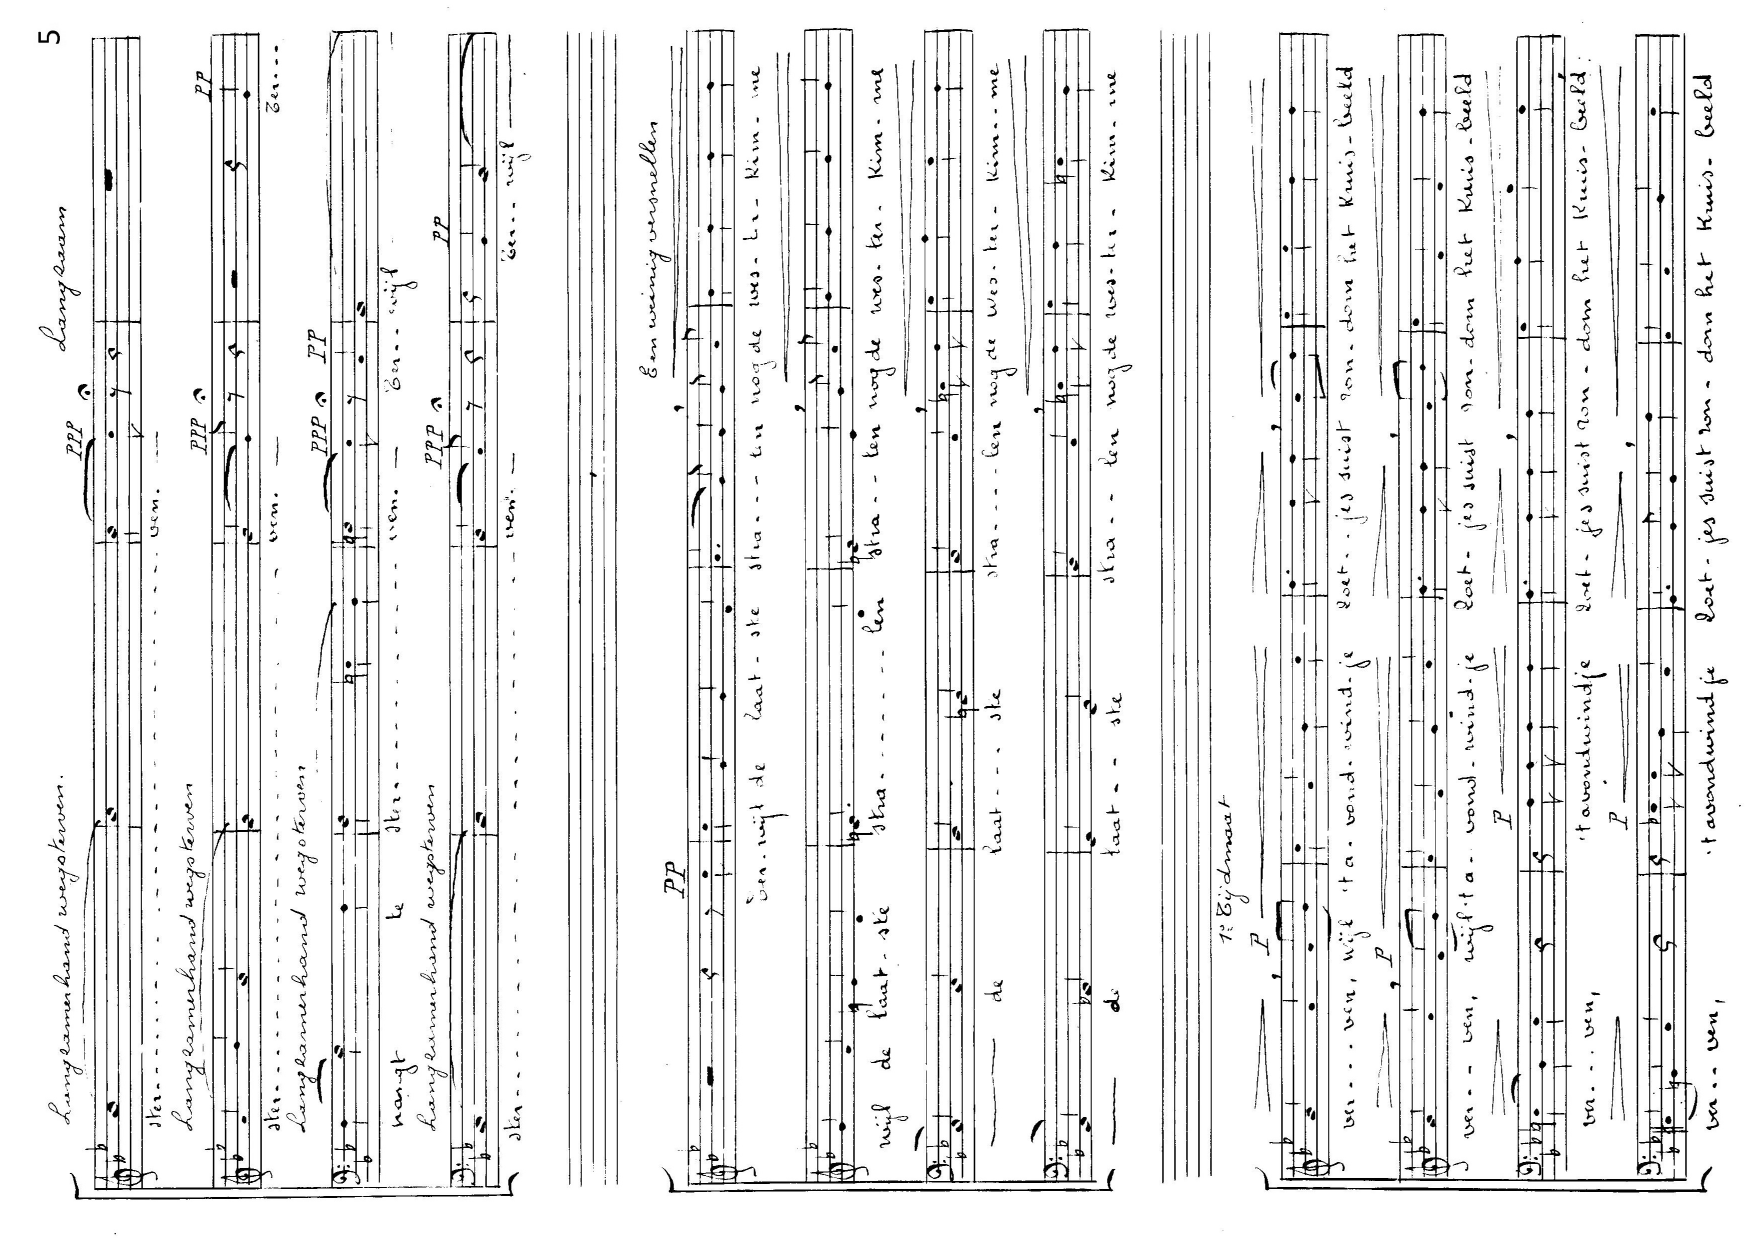 5
Langzamerhand wegsterven. PPP Langzaam
ster........ven.
Langzamerhand wegsterven PPP PP
ster........ven. Ter...
Langzamerhand wegsterven PPP PP
hangt te ster........ven. Ter...wijl
Langzamerhand wegsterven PPP PP
ster........ven. Ter...wijl
PP Een weinig versnellen
Ter-wijl de laat-ske stra---len nog de wes-te-kim-me
wijl de laat-ske stra-------len stra---len nog de wes-ter-kim-me
de laat---ske stra----len nog de wes-ter-kim--me
de laat--ske stra--len nog de wes-ter-kim-me
1e Tijdmaat
P
ver---ven, wijl 't a-vond-wind-je zoet-jes suist ron-dom het kruis-beeld
P
ver---ven, wijl 't a-vond-wind-je zoet-jes suist ron-dom het kruis-beeld
P
ver---ven, 't avondwindje zoet-jes suist ron-dom het kruis-beeld:
P
ver--ven, 't avondwindje zoet-jes suist ron-dom het kruis-beeld